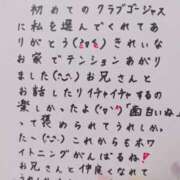 初めてのクラブゴージャス
に私を選んでくれてあ
りがとう(≧▽≦)きれいな
お家でテンションあがり
ました(^-^)お兄さんと
お話したりイチャイチャするの
楽しかったよ(^o^)「面白いね」
って褒められてうれしかっ
た〜(^-^)これからもホワ
イトニングがんばるね
お兄さんと仲良くなれて